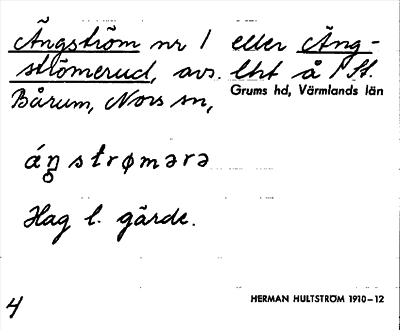 Ängström nr 1 eller Äng-
strömerud, avs. Lht å 1 St.
Bårum, Nors sn,
Grums hd, Värmlands län
áŋ̥strømərə
Hag l. gärde.
4
HERMAN HULTSTRÖM 1910–12